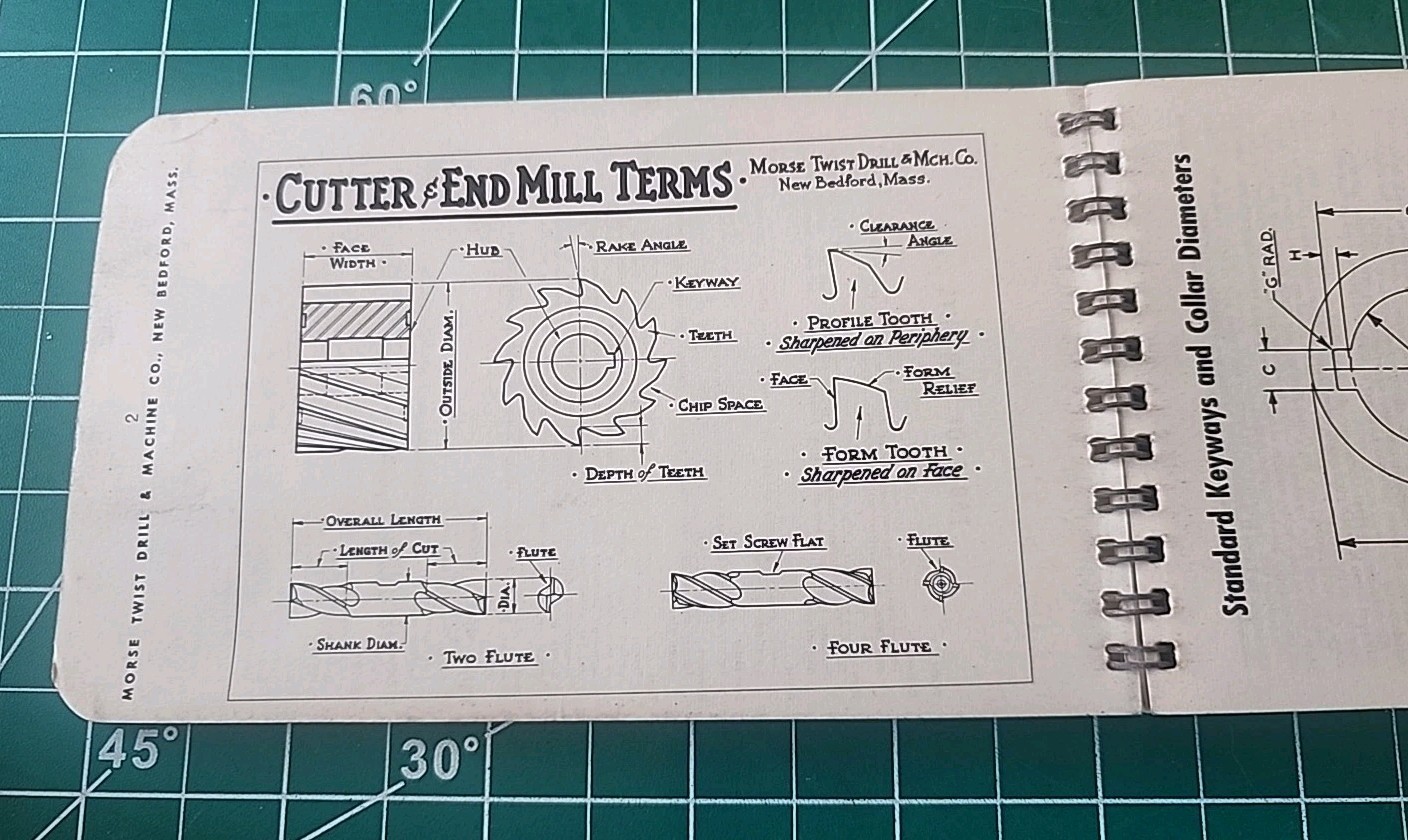 60°
MORSE TWIST DRILL & MACHINE CO., NEW BEDFORD, MASS.
2
· CUTTER & END MILL TERMS ·
MORSE TWIST DRILL & MCH. CO.
New Bedford, Mass.
· FACE
WIDTH ·
· HUB
· RAKE ANGLE
· KEYWAY
· TEETH
· CHIP SPACE
· OUTSIDE DIAM.
· DEPTH of TEETH
· CLEARANCE
ANGLE
· PROFILE TOOTH ·
· Sharpened on Periphery ·
· FACE
· FORM
RELIEF
· FORM TOOTH ·
· Sharpened on Face ·
· OVERALL LENGTH
· LENGTH of CUT
· FLUTE
· DIA.
· SHANK DIAM.
· TWO FLUTE ·
· SET SCREW FLAT
· FLUTE
· FOUR FLUTE ·
Standard Keyways and Collar Diameters
"G" RAD.
H
C
45°
30°